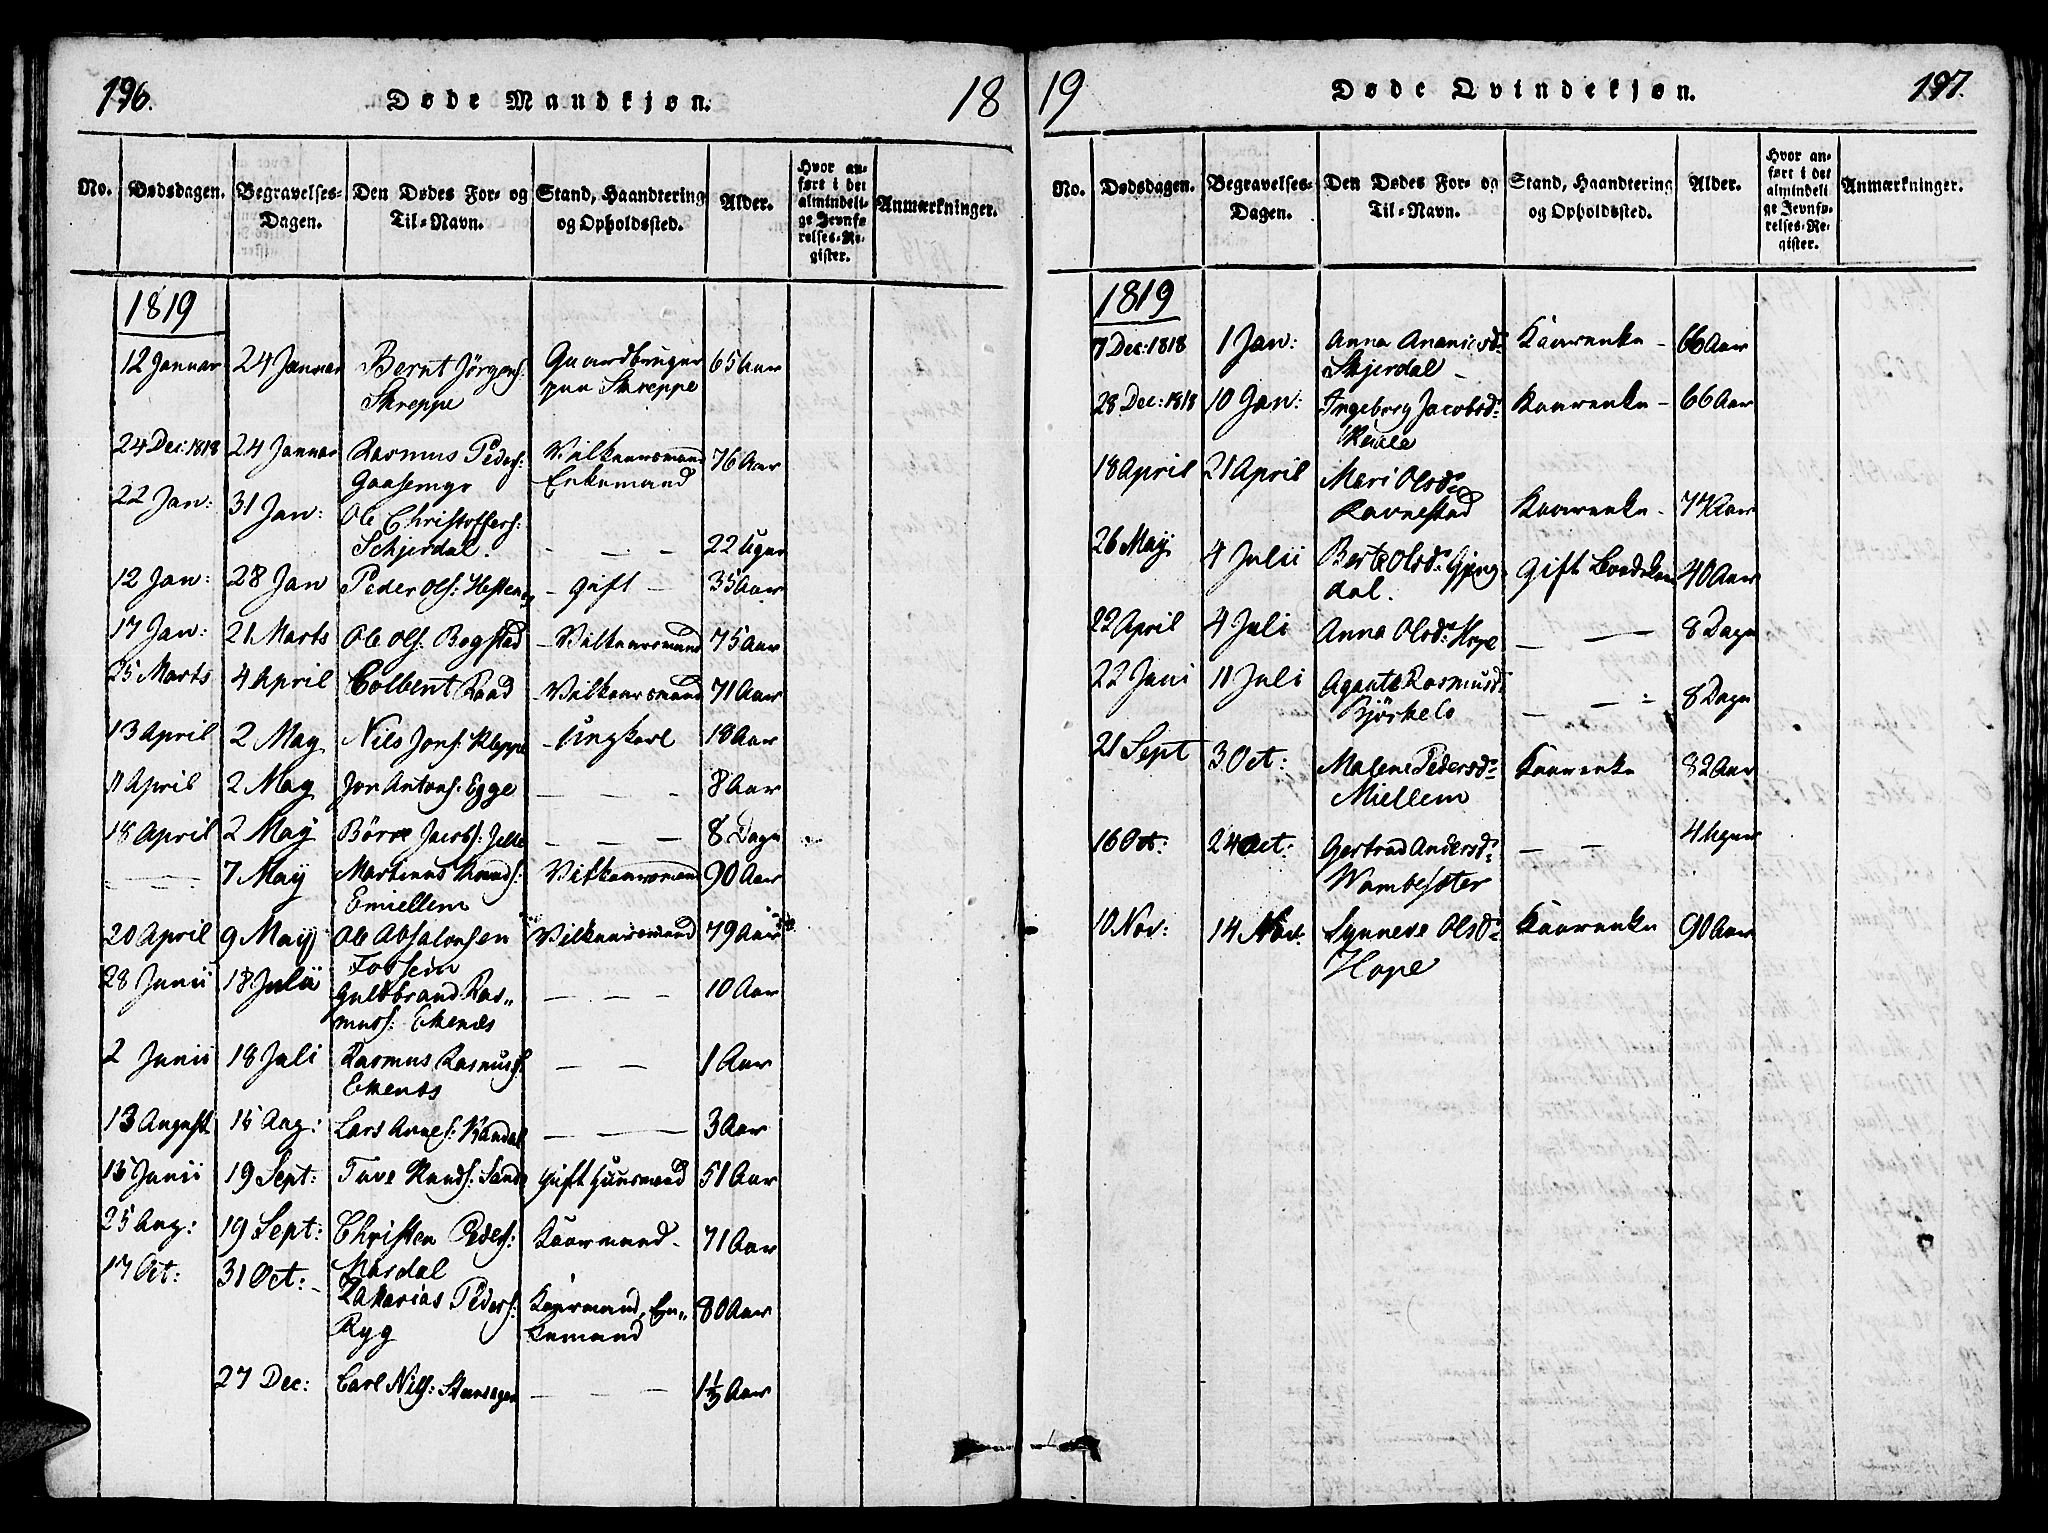 196.
Døde Mandkjøn.
18
No.
Dødsdagen.
Begravelses-
Dagen.
Den Dødes For- og
Til-Navn.
Stand, Haandtering
og Opholdssted.
Alder.
Hvor an-
ført i det
almindeli-
ge Jevnfø-
relses-Re-
gister.
Anmærkninger.
1819
12 Januar 24 Januar Bernt Jörgens: Gaardbruger 65 Aar
Skreppe paa Skreppe
24 Dec: 1818 24 Januar Rasmus Peders: Vilkaarsmand 76 Aar
Gaasemyr Enkemand
22 Jan: 31 Jan: Ole Christoffers:
Schjerdal. - - - 22 Uger
12 Jan: 28 Jan Peder Ols: - Gift - 35 Aar
17 Jan: 21 Marts Ole Ols: Bogstad - Vilkaarsmand 75 Aar
25 Marts 4 April Colbent Raad - Vilkaarsmand 71 Aar
13 April 2 May Nils Jons: Kleppe - Ungkarl 18 Aar
11 April 2 May Jon Antons: Egge - - - 8 Aar
18 April 2 May Börre Jacobs: - - - 8 Dage
- - - 7 May Martinus Knuds: Vilkaarsmand 90 Aar
Emiellem
20 April 9 May Ole Absalonsen Vilkaarsmand 79 Aar
28 Junii 18 Julii Guldbrand Ras- - - - 10 Aar
muss: Ekenæs
2 Junii 18 Juli Rasmus Rasmuss: - - - 1 Aar
Ekenæs
13 August 15 Aug: Lars Arnes: - - - 3 Aar
15 Junii 19 Sept: Tave Knuds: Sande gift Huusmand 51 Aar
25 Aug: 19 Sept: Christen Peders: Kaarmand - 71 Aar
Mardal
17 Oct: 31 Oct: - Zakarias Peders: Kaarmand, En- 80 Aar
Ryg kemand
27 Dec: Carl Nils: - - - 1½ Aar
19
Døde Qvindekjøn.
197.
No.
Dødsdagen.
Begravelses-
Dagen.
Den Dødes For- og
Til-Navn.
Stand, Haandtering
og Opholdssted.
Alder.
Hvor an-
ført i det
almindeli-
ge Jevnfø-
relses-Re-
gister.
Anmærkninger.
1819
7 Dec: 1818 1 Jan: Anna Ananiasd: Kaarenke - 66 Aar
Skjerdal -
28 Dec: 1818 10 Jan: Ingeborg Jacobsd: Kaarenke - 66 Aar
18 April 21 April Mari Olsd:
Ravnestad Kaarenke - 77 Aar
26 May 4 Julii Berte Olsd: Gjeng- Gift 40 Aar
dal.
22 April 4 Juli Anna Olsd: Hope - - 8 Dage
22 Juni 11 Juli Agante Rasmusd: - - - 8 Dage
Björkelo
21 Sept 3 Oct: Malene Pedersd: Kaarenke 82 Aar
Miellem
16 Oct: 24 Oct: Gertrud Andersd: - - 4 Uger
10 Nov: 14 Nov: Synneve Olsd: Kaarenke 90 Aar
Hope